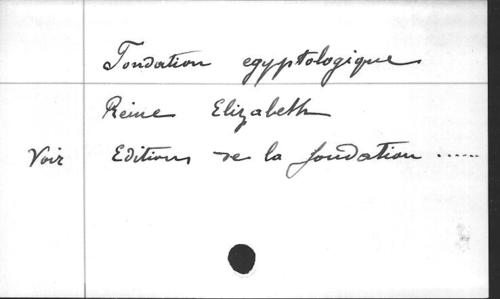 Fondation egyptologique
Reine Elizabeth
Voir Editions de la fondation ......